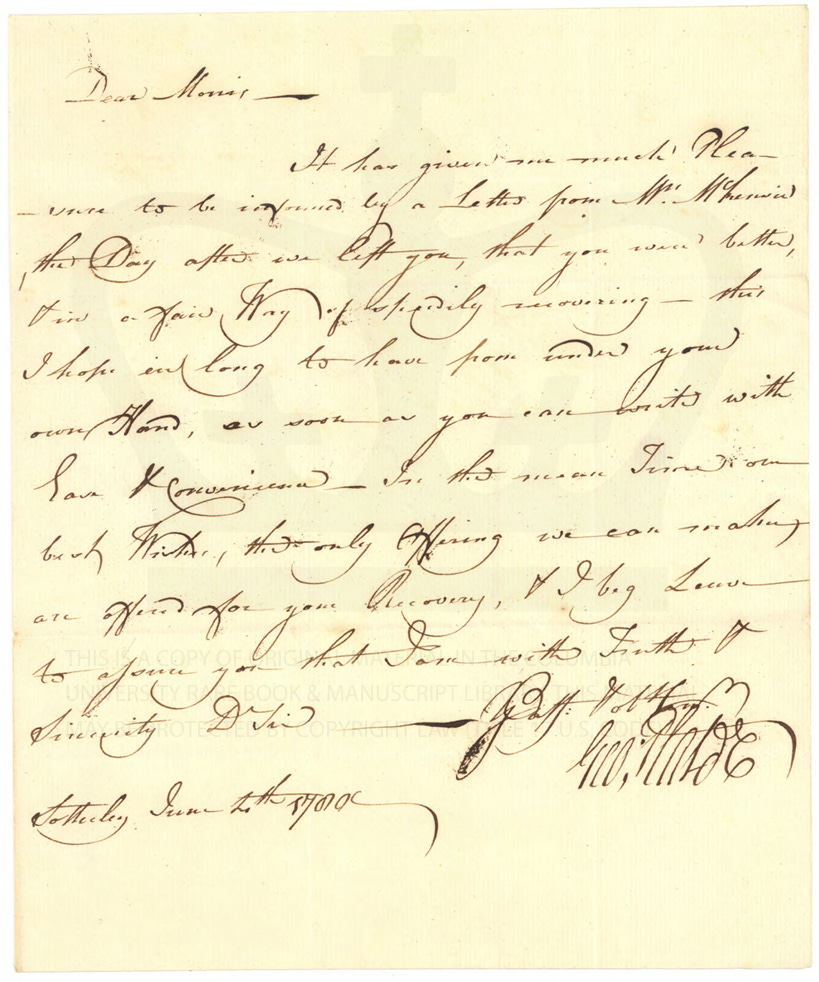 Dear Morris —
It has given me much Plea—
—sure to be informed by a Letter from Mr. McKenzie
the Day after we left you, that you were better,
& in a fair Way of speedily recovering — this
I hope ere long to have from under your
own Hand, as soon as you can write with
Ease & Convenience — In the mean Time our
best Wishes, the only Offering we can make,
are offered for your Recovery, & I beg Leave
to assure you that I am with Truth &
Sincerity Dr Sir — Yr aff. & obt
Geo: Plater
Sotterley June 4th 1788
THIS IS A COPY OF ORIGINAL MATERIAL IN THE COLUMBIA
UNIVERSITY RARE BOOK & MANUSCRIPT LIBRARY. THIS MATERIAL
MAY BE PROTECTED BY COPYRIGHT LAW (TITLE 17 U.S. CODE)